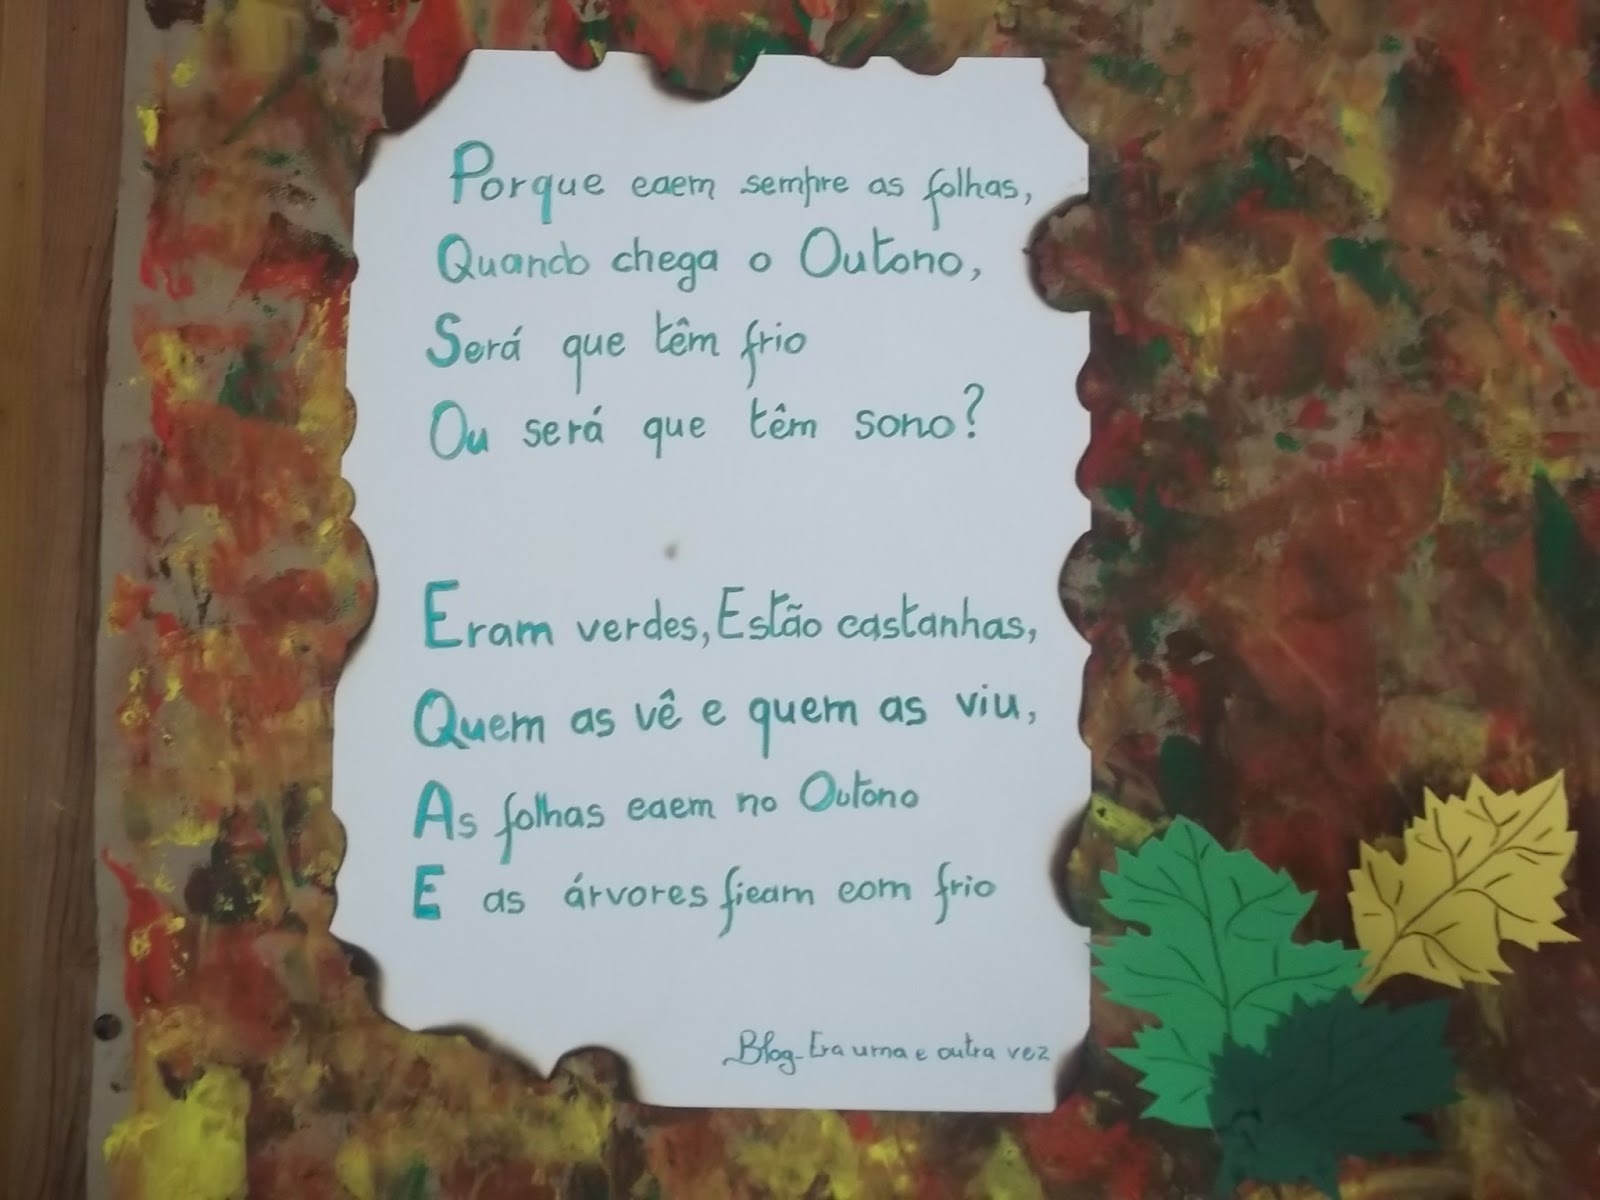 Porque caem sempre as folhas,
Quando chega o Outono,
Será que têm frio
Ou será que têm sono?
Eram verdes, Estão castanhas,
Quem as vê e quem as viu,
As folhas caem no Outono
E as árvores ficam com frio
Blog-Era uma e outra vez